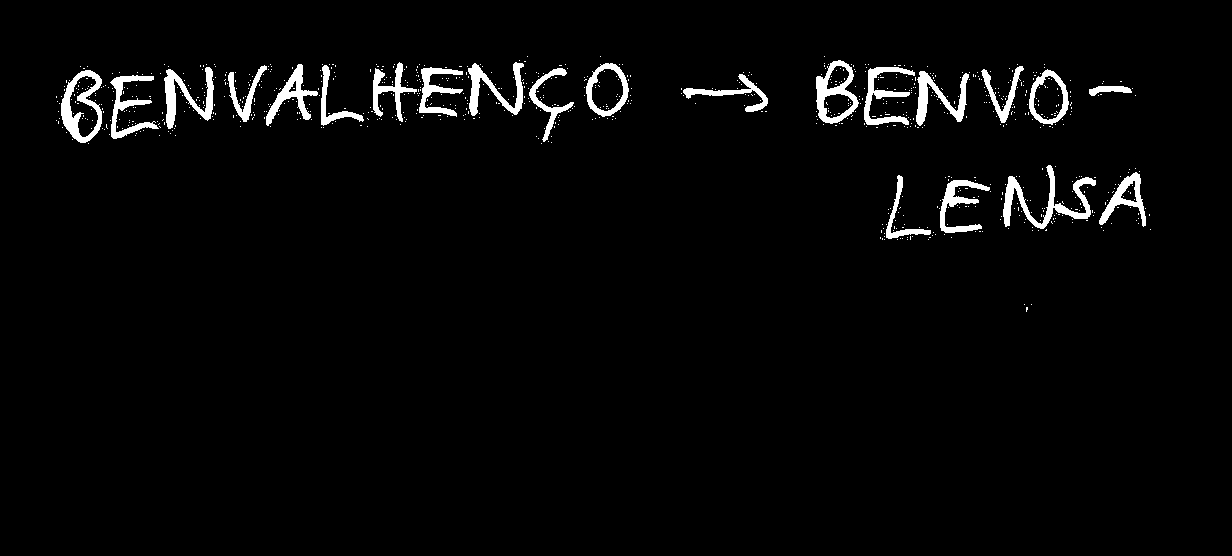 BENVALHENÇO → BENVO-
LENSA